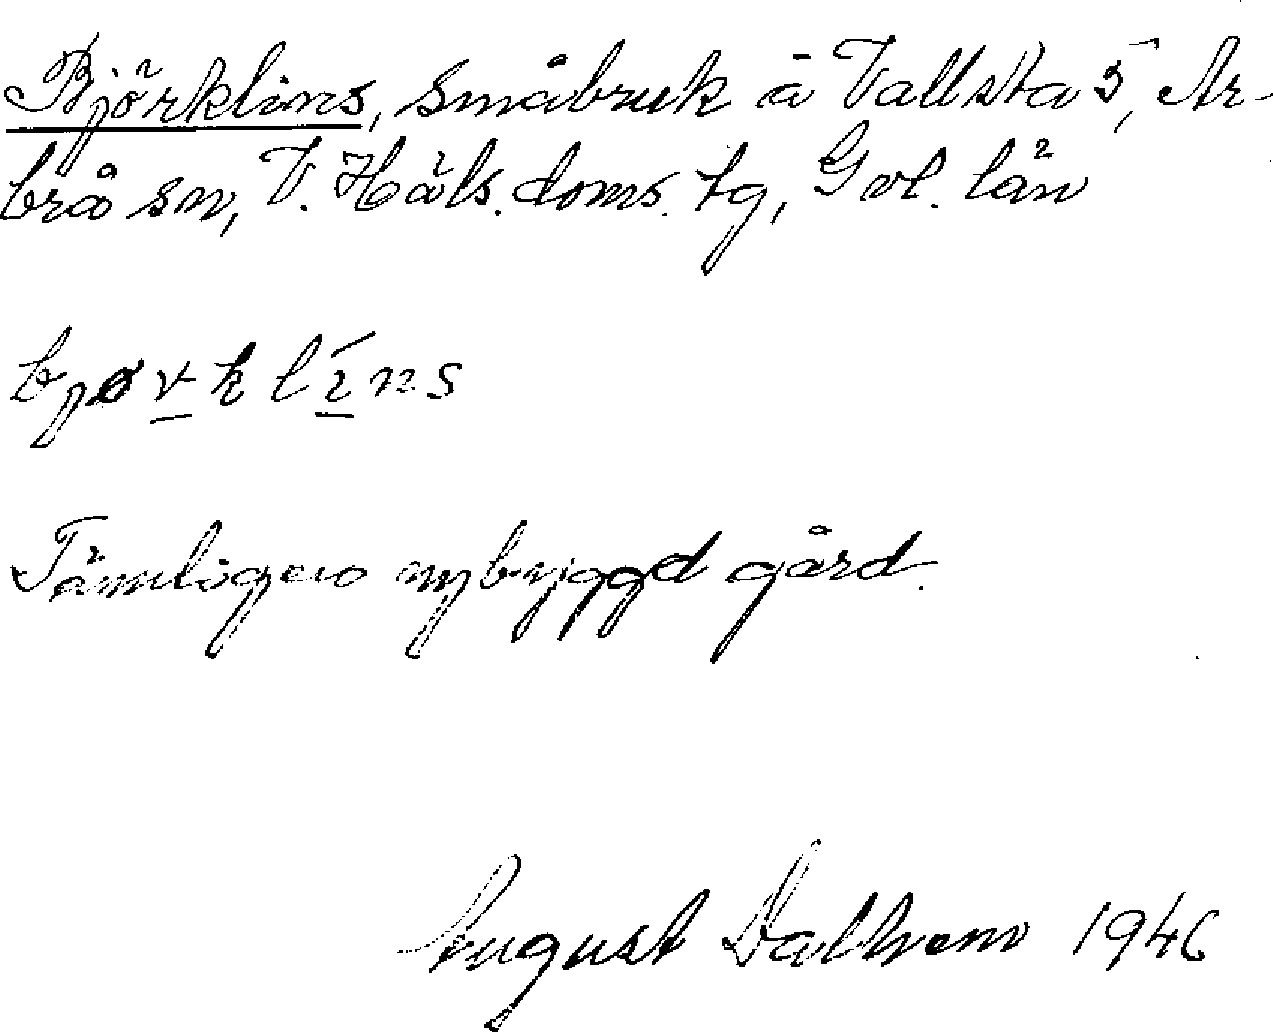 Björklins, småbruk å Vallsta 5, Ar-
brå sn, V. Häls. doms. tg, Gvl. län
bjørklíns
Tämligen nybyggd gård.
August Dalhem 1946